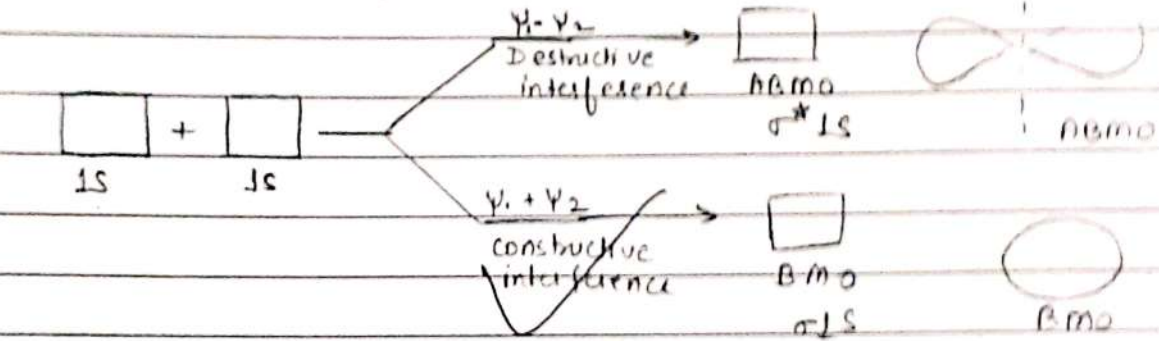 Ψ₁-Ψ₂
Destructive
interference
ABMO
σ* 1S
ABMO
+
1S
1S
Ψ₁ + Ψ₂
constructive
interference
BMO
σ1S
BMO